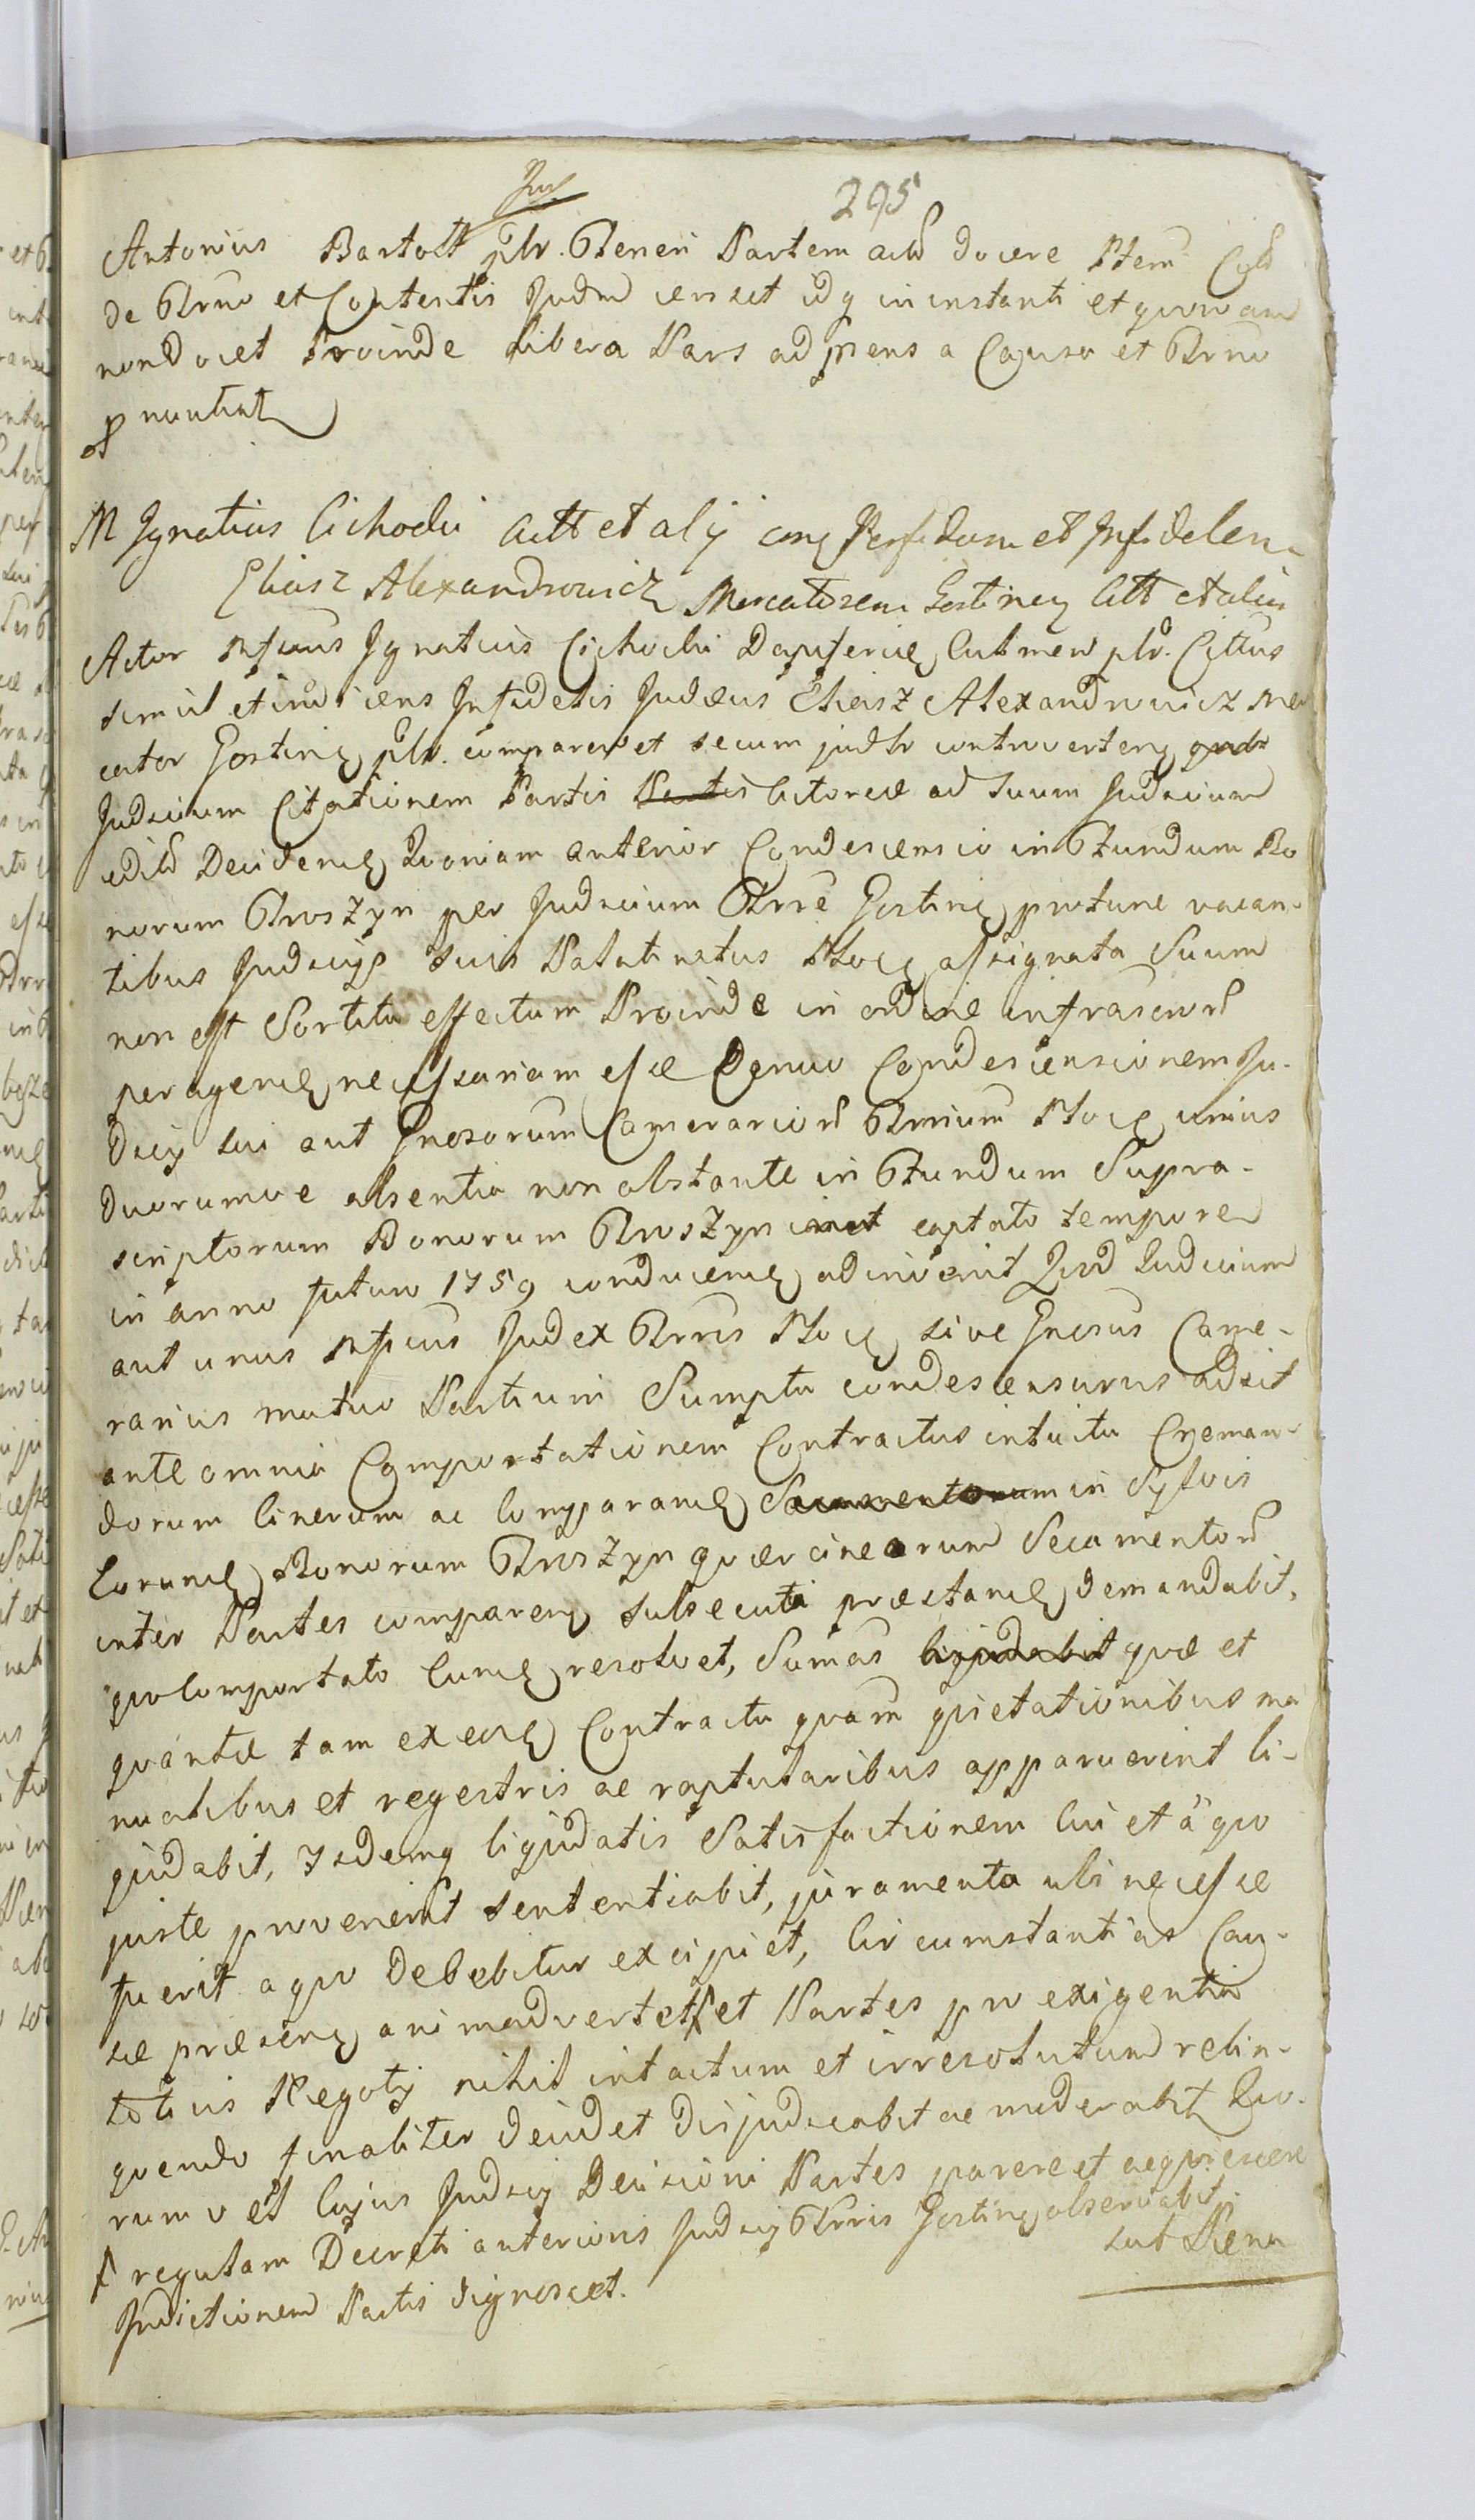 295
Antonius Bartolt plr. Teneri Partem actd docere Ptem Citd
de Trno et Contentis Judm censet idq in instanti et quoniam
non docet Proinde libera Pars adpsens a Causa et Trno
pnuntiat
M Ignatius Cichocki Actt et alij cong Perfidum et Infidelem
Eliasz Alexandrowicz Mercatorem Gostinen Citt et alius
Actor Mfcus Ignatius Cichocki Dapifer Culmen plr. Cittus
simul et inducens Infidelis Judæus Eliasz Alexandrowicz Mer
cator Gostinen plr. comparent et secum judlr controverten
Judicium Citationem Partis Partis Actoreæ ad Suum Judicium
editd Deciden Quoniam anterior Condescensio in Fundum Bo
norum Troszyn per Judicium Trre Gostinen protunc vacan-
tibus Judicijs suis Palatinatus Ploc assignata Suum
non est Sortita effectum Proinde in ordine infrascriptor
peragen necessariam esse Denuo Condescensionem Ju-
dicij sui aut Gnosorum Camerarior Trrium Ploc unius
duorumve absentia non obstante in Fundum Supra-
scriptorum Bonorum Troszyn captato tempore
in anno futuro 1759 conducen adinvenit Quod Judicium
aut unus Mfcus Judex Trris Ploc sive Gnosus Came-
rarius mutuo Partium Sumptu condescensurus adsit
ante omnia Comportationem Contractus intuitu Creman-
dorum Cinerum ac Comparan Sacramentorum in Sylvis
Eorum Bonorum Troszyn quercinearum Secamentor
inter Partes comparen subsecuti præstan demandabit,
quo Comportato resolvet, Sumas liquidabit quæ et
quantæ tam ex eo Contractu quam quietationibus ma
nualibus et regestris ac raptularibus apparuerint li-
quidabit, Isdemq liquidatis Satisfactionem cui et à quo
juste provenerit sententiabit, juramenta ubi necesse
fuerit a quo debebitur excipiet, Circumstantias Cau-
sæ præsen animadvertet, et Partes pro exigentia
totius Negotij nihil intactum et irresolutum relin-
quendo finaliter decidet disjudicabit ac moderabit Quo-
rum v et Cujus Judicij Decisioni Partes parere et acquiescere
regulam Decreti anterioris Judicij Trris Gostinen observabit.
sub Pena
Judictionem Partis dignoscet.